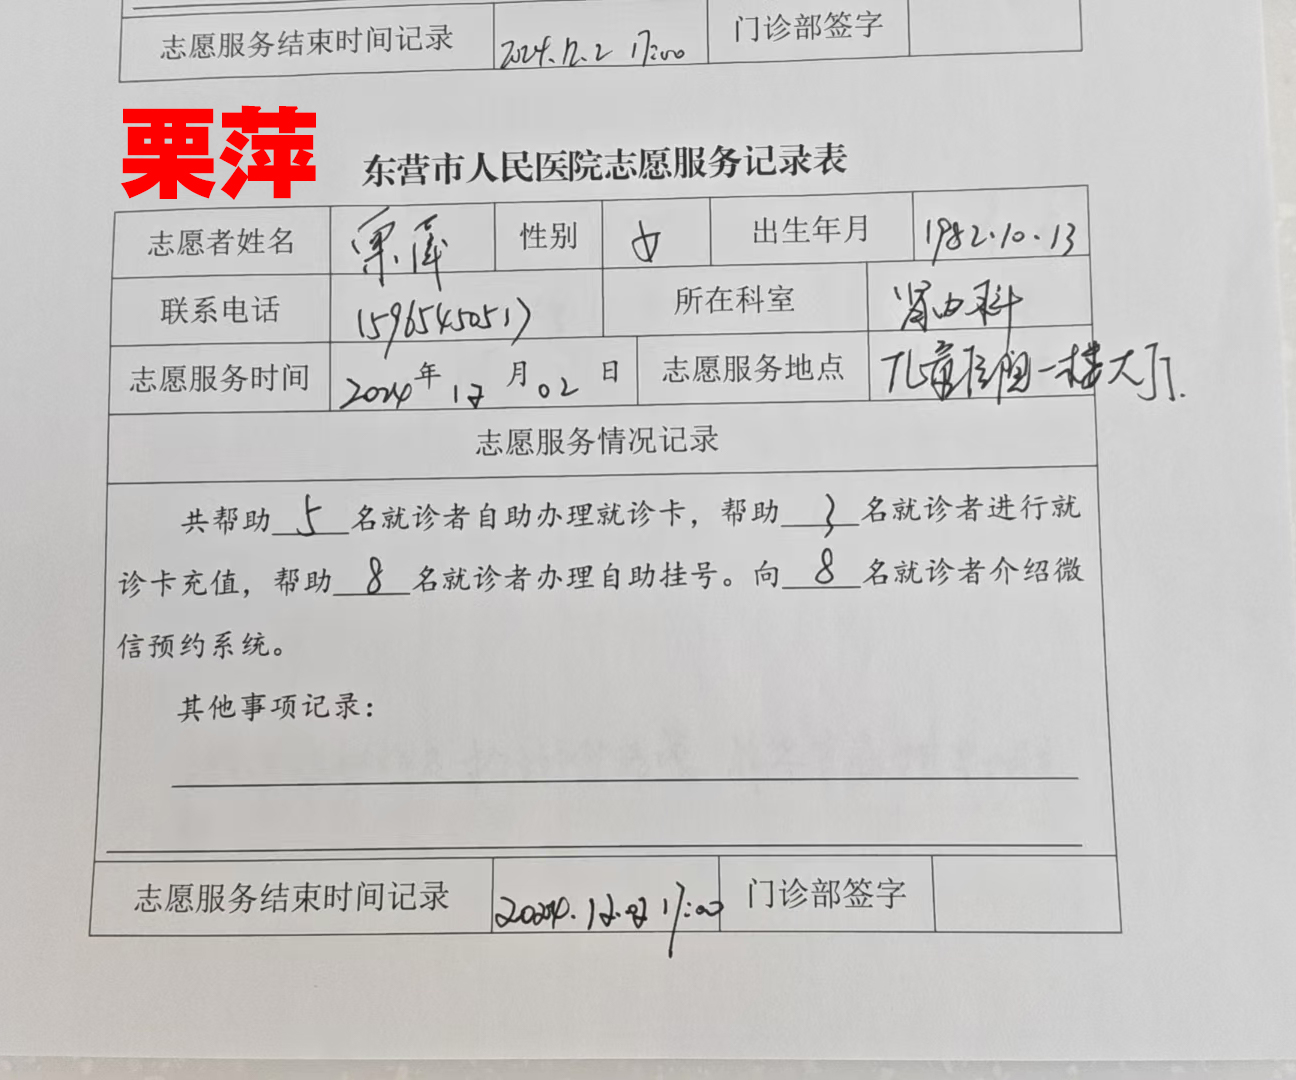 志愿服务结束时间记录 2024.12.2 17:00 门诊部签字
栗萍
东营市人民医院志愿服务记录表
志愿者姓名 栗萍 性别 女 出生年月 1982.10.13
联系电话 15965450517 所在科室 肾内科
志愿服务时间 2024年12月02日 志愿服务地点 儿童医院一楼大厅.
志愿服务情况记录
共帮助5名就诊者自助办理就诊卡，帮助3名就诊者进行就
诊卡充值，帮助8名就诊者办理自助挂号。向8名就诊者介绍微
信预约系统。
其他事项记录：
志愿服务结束时间记录 2024.12.02 17:00 门诊部签字